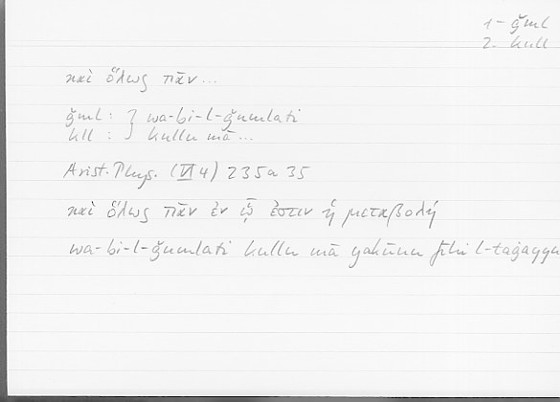 1 - ǧml
2. kull
καὶ ὅλως πᾶν ...
ǧml : } wa-bi-l-ǧumlati
kll : } kullu mā ...
Arist. Phys. (VI 4) 235a 35
καὶ ὅλως πᾶν ἐν ᾧ ἐστιν ἡ μεταβολή
wa-bi-l-ǧumlati kullu mā yakūnu fīhi l-taġayyu